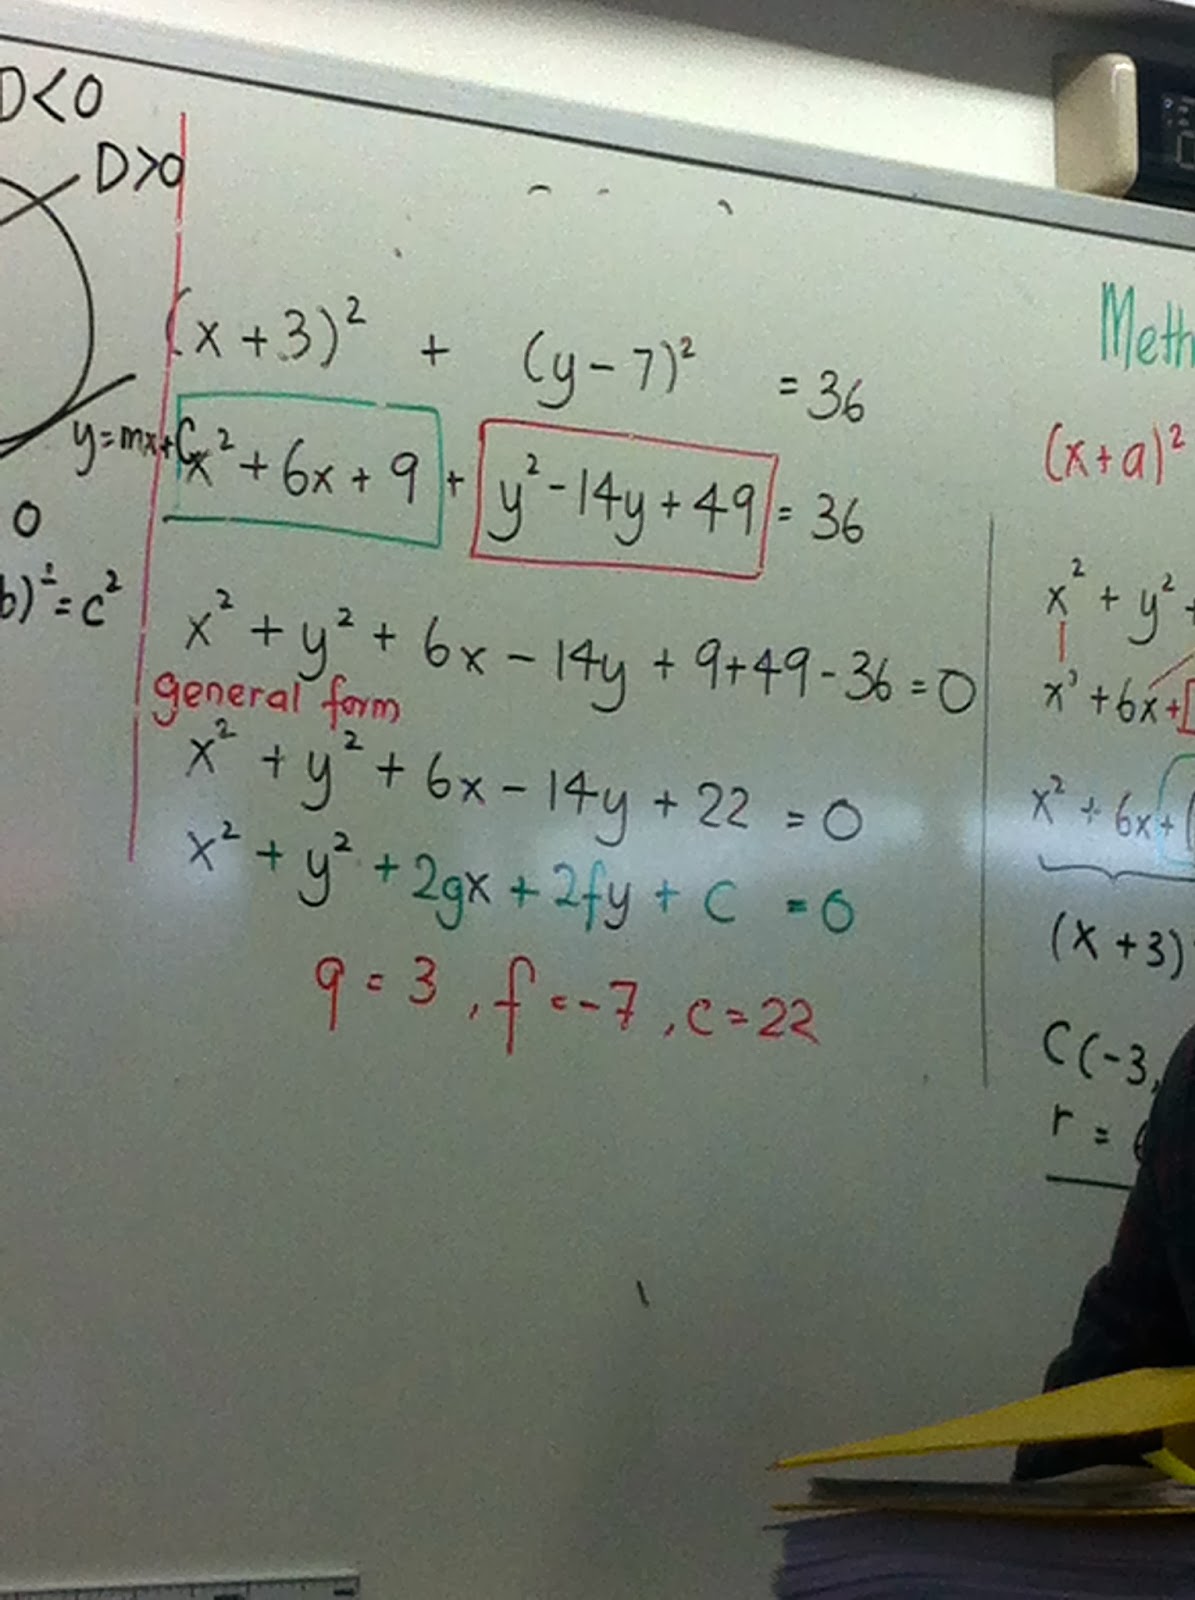 D<0
D>0
y=mx+c
0
b)² = c²
(x+3)² + (y-7)² = 36
x² + 6x + 9 + y² - 14y + 49 = 36
x² + y² + 6x - 14y + 9+49-36 = 0
general form
x² + y² + 6x - 14y + 22 = 0
x² + y² + 2gx + 2fy + c = 0
g = 3, f = -7, c = 22
(x+a)²
x² + y² +
x² + 6x +
x² + 6x + (
(x+3)
C(-3,
r =